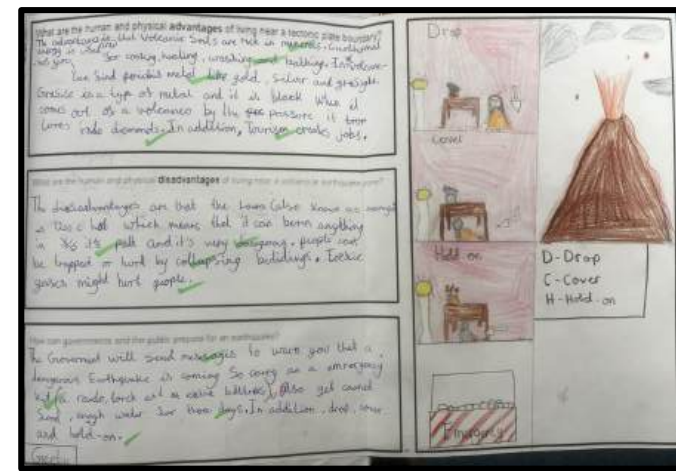 What are the human and physical advantages of living near a tectonic plate boundary?
The advantages is that Volcanic Soils are rich in minerals. Geothermal
energy is used for cooking, heating, washing and bathing. In
find metal like gold, Silver and
is a type of metal and it is black When it
comes out of a volcano by the pressure it
turns into diamonds. In addition, Tourism creates jobs.
What are the human and physical disadvantages of living near a volcano or earthquake zone?
The disadvantages are that the Lava (also known as
is which means that it can burn anything
in it's path and it's very dangerous. people can
be trapped or hurt by collapsing buildings.
gases might hurt people.
How can governments and the public prepare for an earthquake?
The Government will send messages to warn you that a
dangerous Earthquake is coming So carry an emergency
kit (a torch batteries). Also get canned
food, water for three days. In addition, drop, cover
and hold-on.
Drop
Cover
Hold on
D-Drop
C-Cover
H-Hold-on